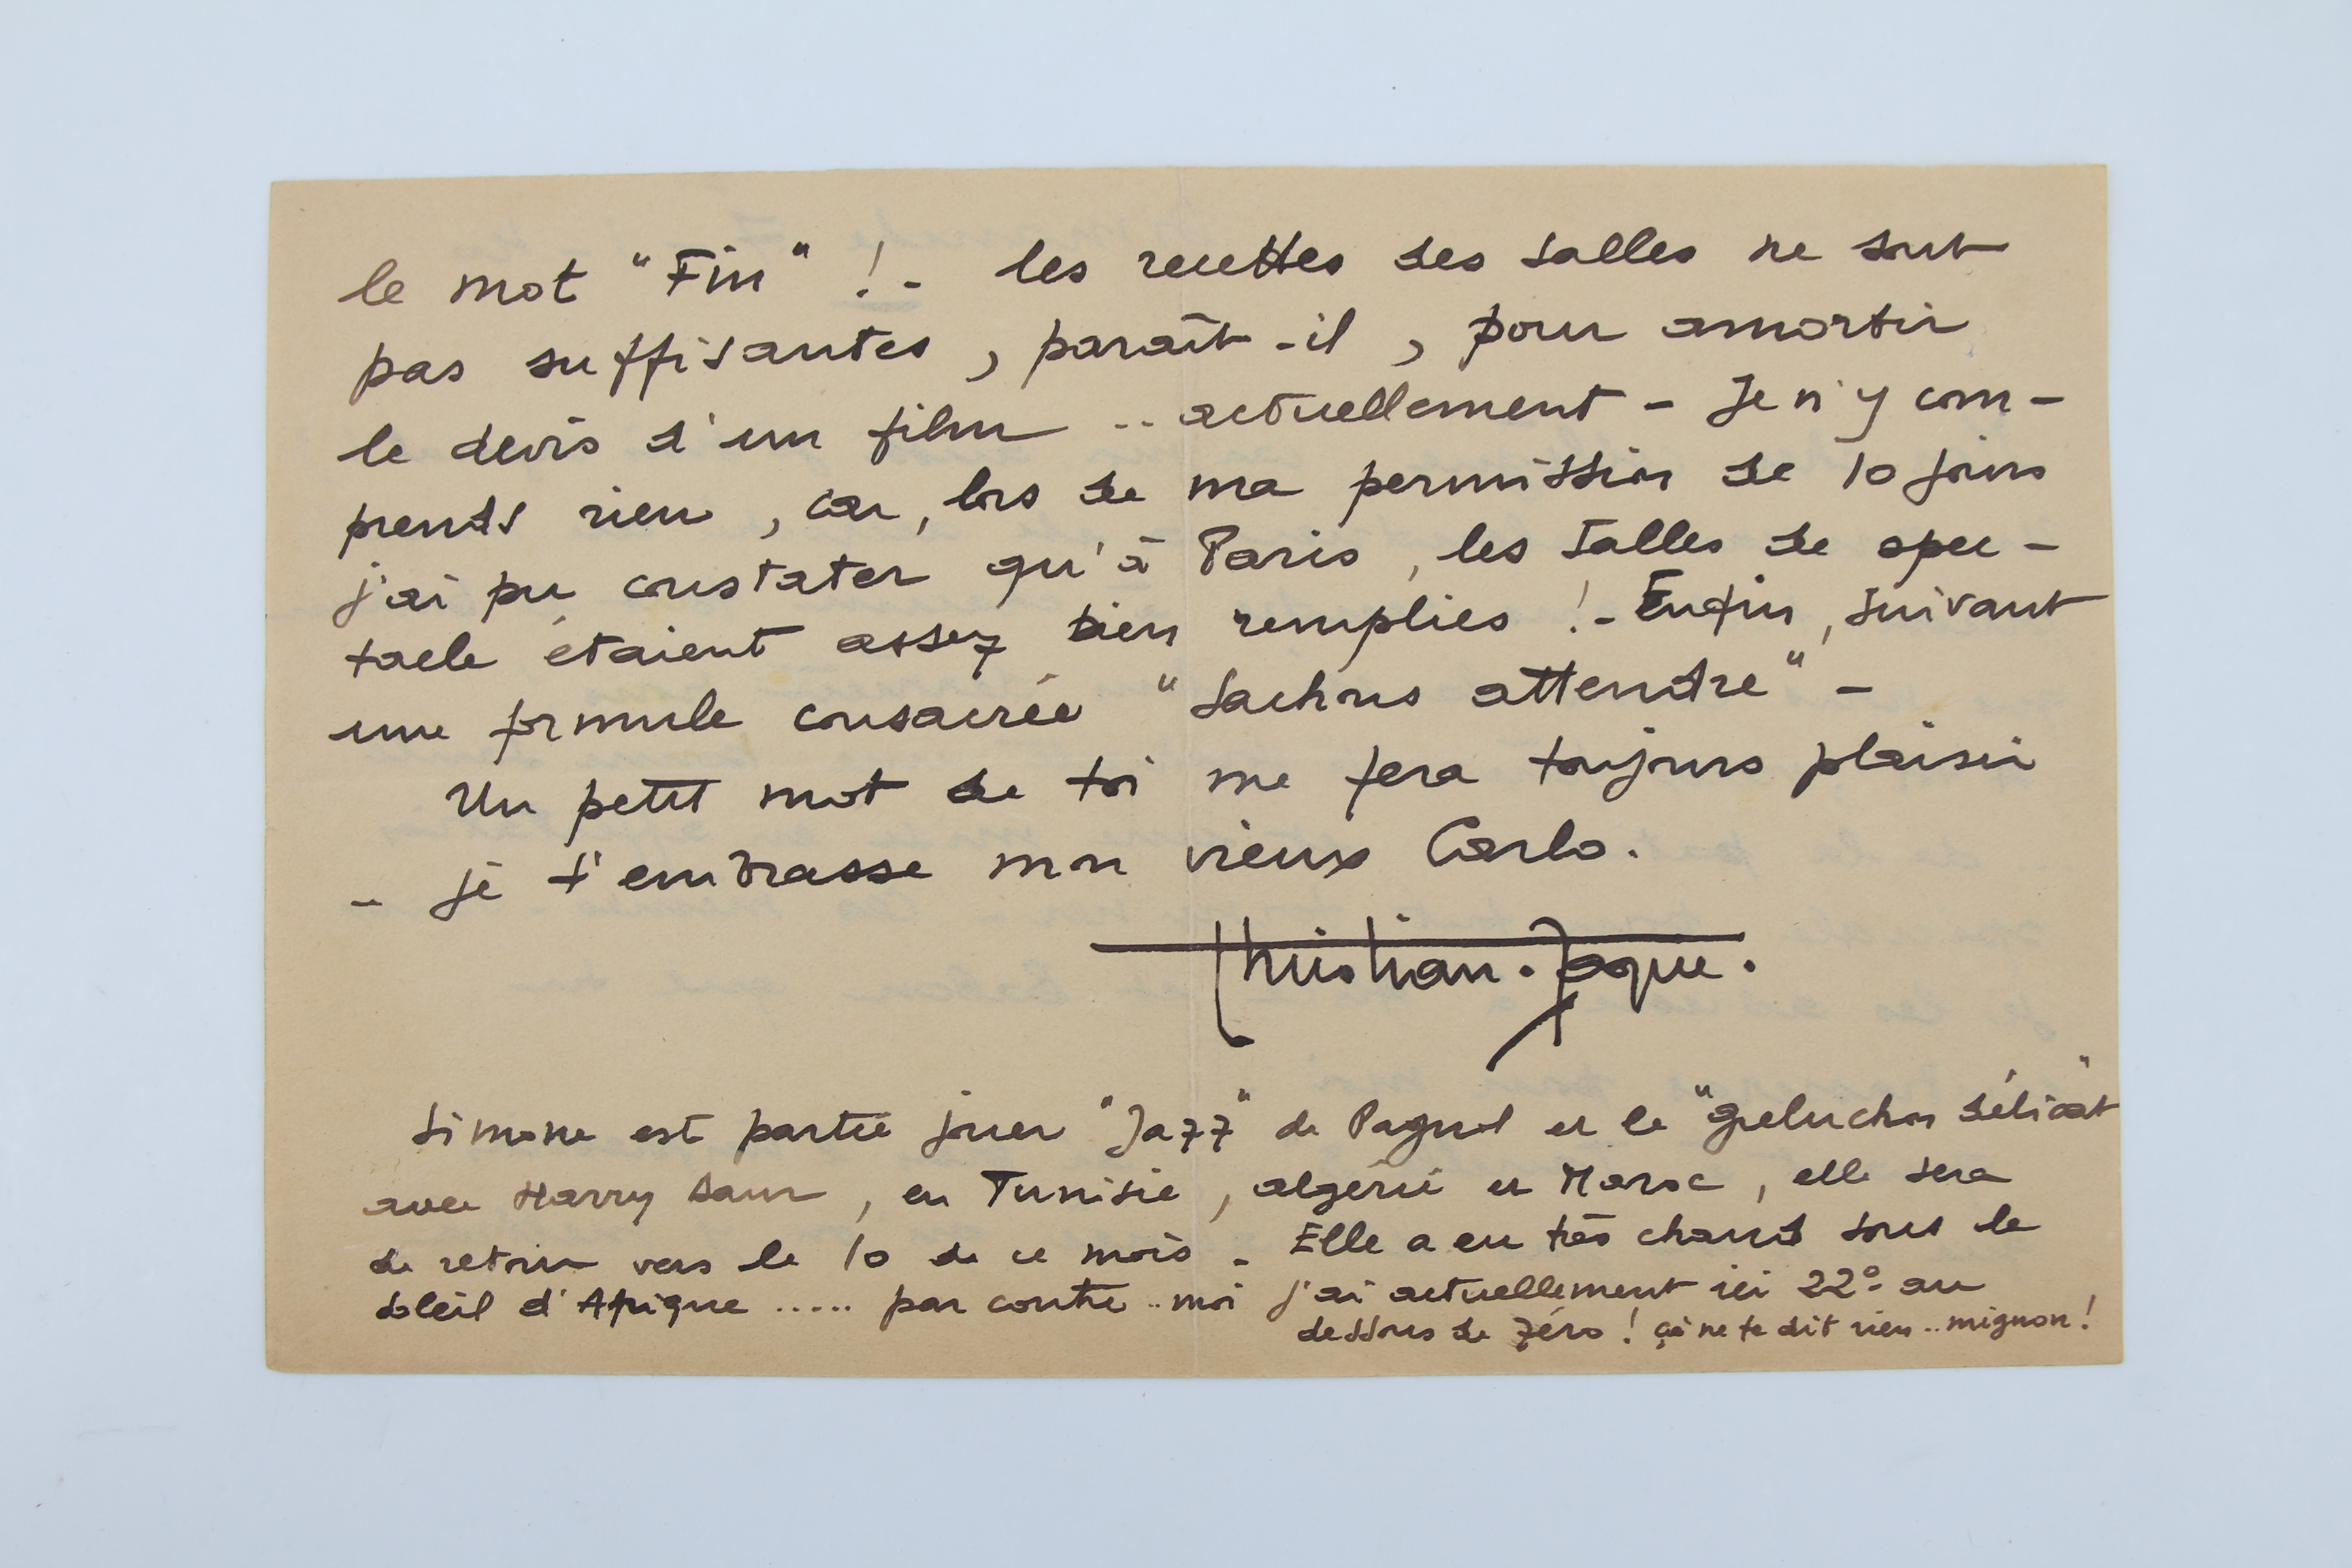 le mot "Fin" !- les recettes des salles ne sont
pas suffisantes, paraît-il, pour amortir
le devis d'un film .. actuellement - Je n'y com-
prends rien, car, lors de ma permission de 10 jours
j'ai pu constater qu'à Paris, les salles de spec-
tacle étaient assez bien remplies !- Enfin, suivant
une formule consacrée "sachons attendre" -
Un petit mot de toi me fera toujours plaisir
- je t'embrasse mon vieux Carlo.
Christian-Jaque.
Simone est partie jouer "Jazz" de Pagnol et le "greluchon délicat"
avec Harry Baur, en Tunisie, algérie et Maroc, elle sera
de retour vers le 10 de ce mois - Elle a eu très chaud sous le
soleil d'Afrique ..... par contre .. moi j'ai actuellement ici 22° au
dessous de zéro ! çà ne te dit rien .. mignon !